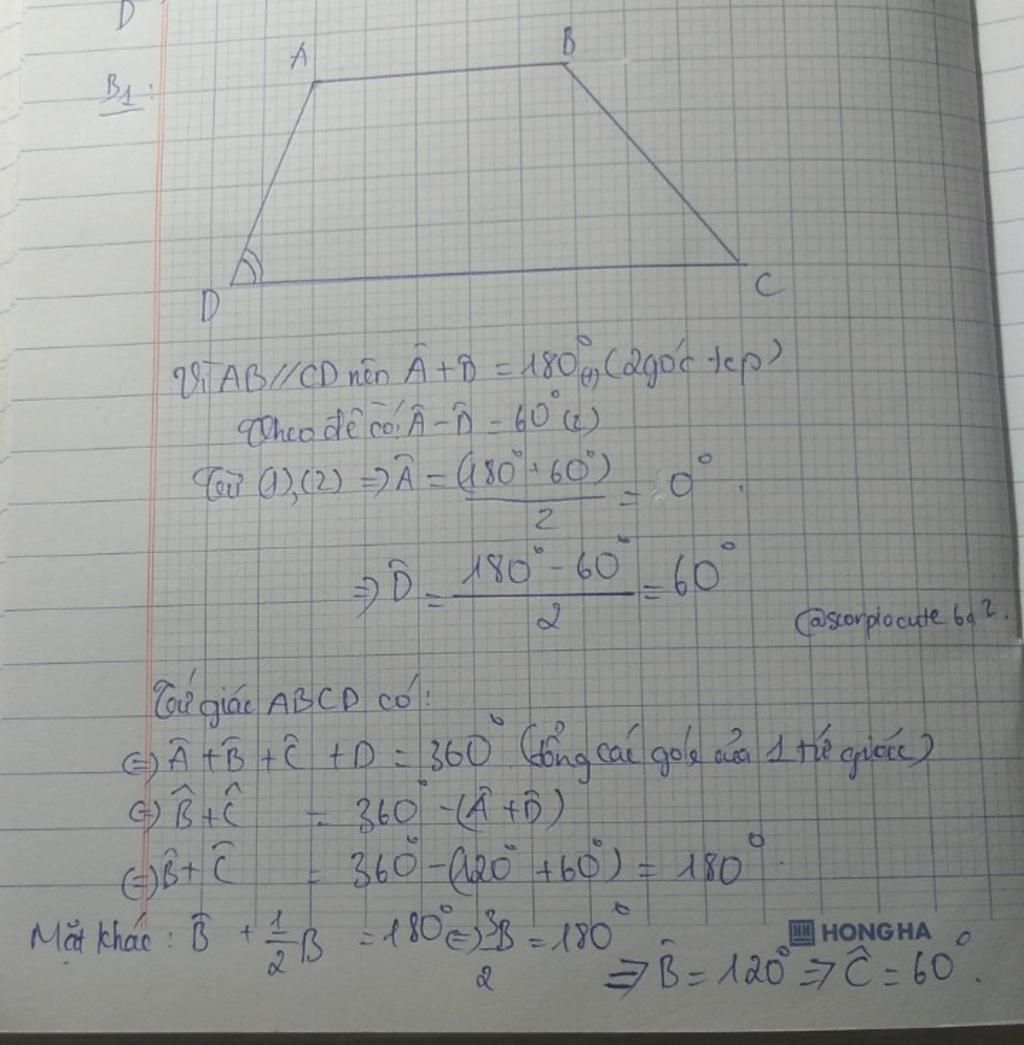 D
B1:
A
B
D
C
Vì AB//CD nên Â + D̂ = 180° (1) (2 góc tcp)
Theo đề có: Â - D̂ = 60° (2)
Từ (1), (2) => Â = (180° + 60°)/2 = 0°.
=> D̂ = (180° - 60°)/2 = 60°
@scorpiocute 6a2.
Tứ giác ABCD có:
(=) Â + B̂ + Ĉ + D = 360° (tổng các góc của 1 tứ giác)
(=) B̂ + Ĉ = 360° - (Â + D̂)
(=) B̂ + Ĉ = 360° - (120° + 60°) = 180°.
Mặt khác: B̂ + 1/2 B = 180° (=) 3B/2 = 180°
HONG HA
=> B̂ = 120° => Ĉ = 60°.